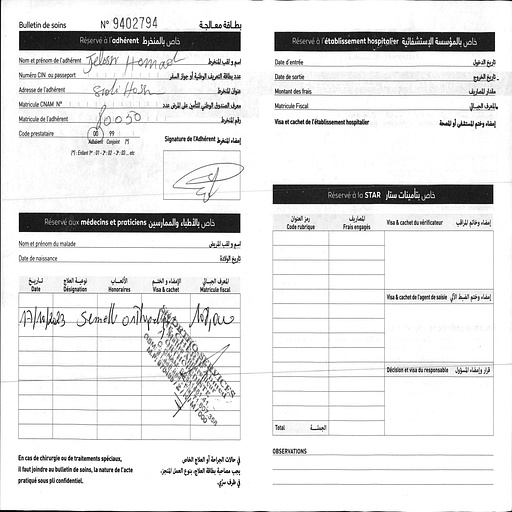 Bulletin de soins N° 9402794 بطاقة معالجة
Réservé à l'adhérent خاص بالمنخرط
Nom et prénom de l'adhérent Jellassi اسم و لقب المنخرط
Numéro CIN ou passeport عدد بطاقة التعريف الوطنية أو جواز السفر
Adresse de l'adhérent Sidi عنوان المنخرط
Matricule CNAM N° معرف الصندوق الوطني للتأمين على المرض عدد
Matricule de l'adhérent 80050 رقم المنخرط
Code prestataire 00 99
Adhérent Conjoint (*)
(*) : Enfant 1er : 01 - 2e : 02 - 3e : 03 ... etc
Signature de l'Adhérent إمضاء المنخرط
Réservé aux médecins et praticiens خاص بالأطباء والممارسين
Nom et prénom du malade اسم و لقب المريض
Date de naissance تاريخ الولادة
تاريخ نوعية العلاج الأتعاب الإمضاء و الختم المعرف الجبائي
Date Désignation Honoraires Visa & cachet Matricule fiscal
17/10/2023 Semelle
ORTHO SERVICES
En cas de chirurgie ou de traitements spéciaux,
il faut joindre au bulletin de soins, la nature de l'acte
pratiqué sous pli confidentiel.
في حالات الجراحة أو العلاج الخاص
يجب مصاحبة بطاقة العلاج، بنوع العمل المنجز،
في ظرف سري.
Réservé à l'établissement hospitalier خاص بالمؤسسة الإستشفائية
Date d'entrée تاريخ الدخول
Date de sortie تاريخ الخروج
Montant des frais مقدار المصاريف
Matricule Fiscal المعرف الجبائي
Visa et cachet de l'établissement hospitalier إمضاء وختم المستشفى أو المصحة
Réservé à la STAR خاص بتأمينات ستار
رمز العنوان المصاريف
Code rubrique Frais engagés
Visa & cachet du vérificateur إمضاء وخاتم المراقب
Visa & cachet de l'agent de saisie إمضاء وختم الضبط الآلي
Décision et visa du responsable قرار وإمضاء المسؤول
Total الجملة
OBSERVATIONS